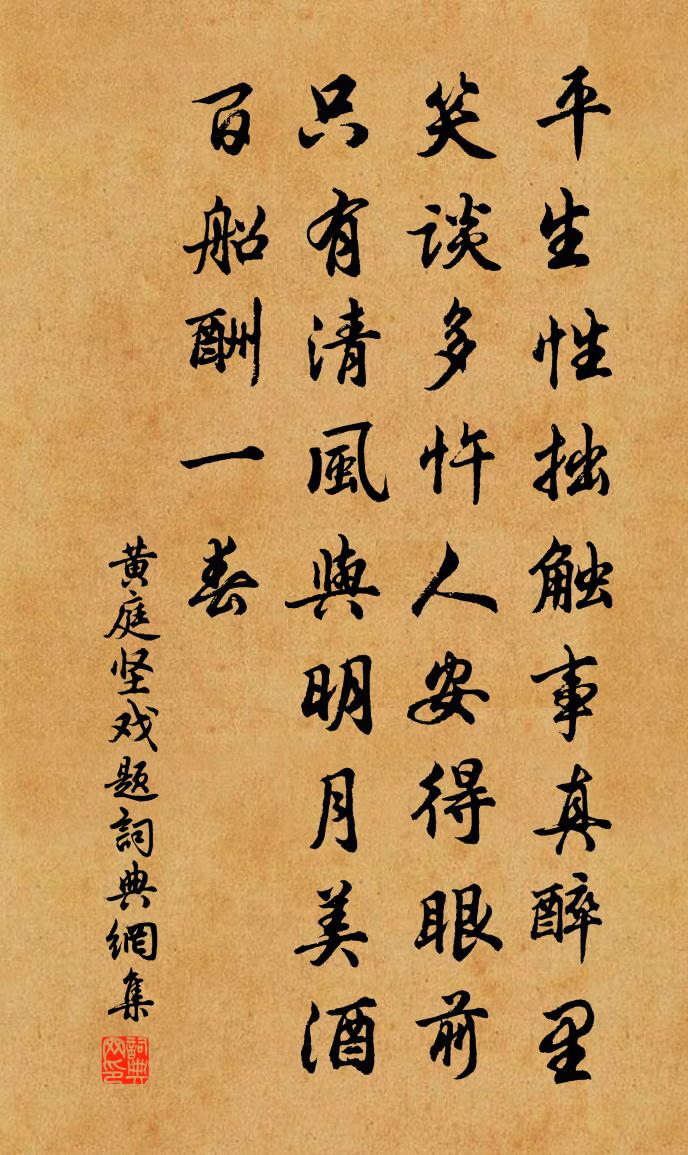 平生性拙触事真醉里
笑谈多忤人安得眼前
只有清風與明月美酒
百船酬一春
黄庭坚戏题詞典網集
詞典网印